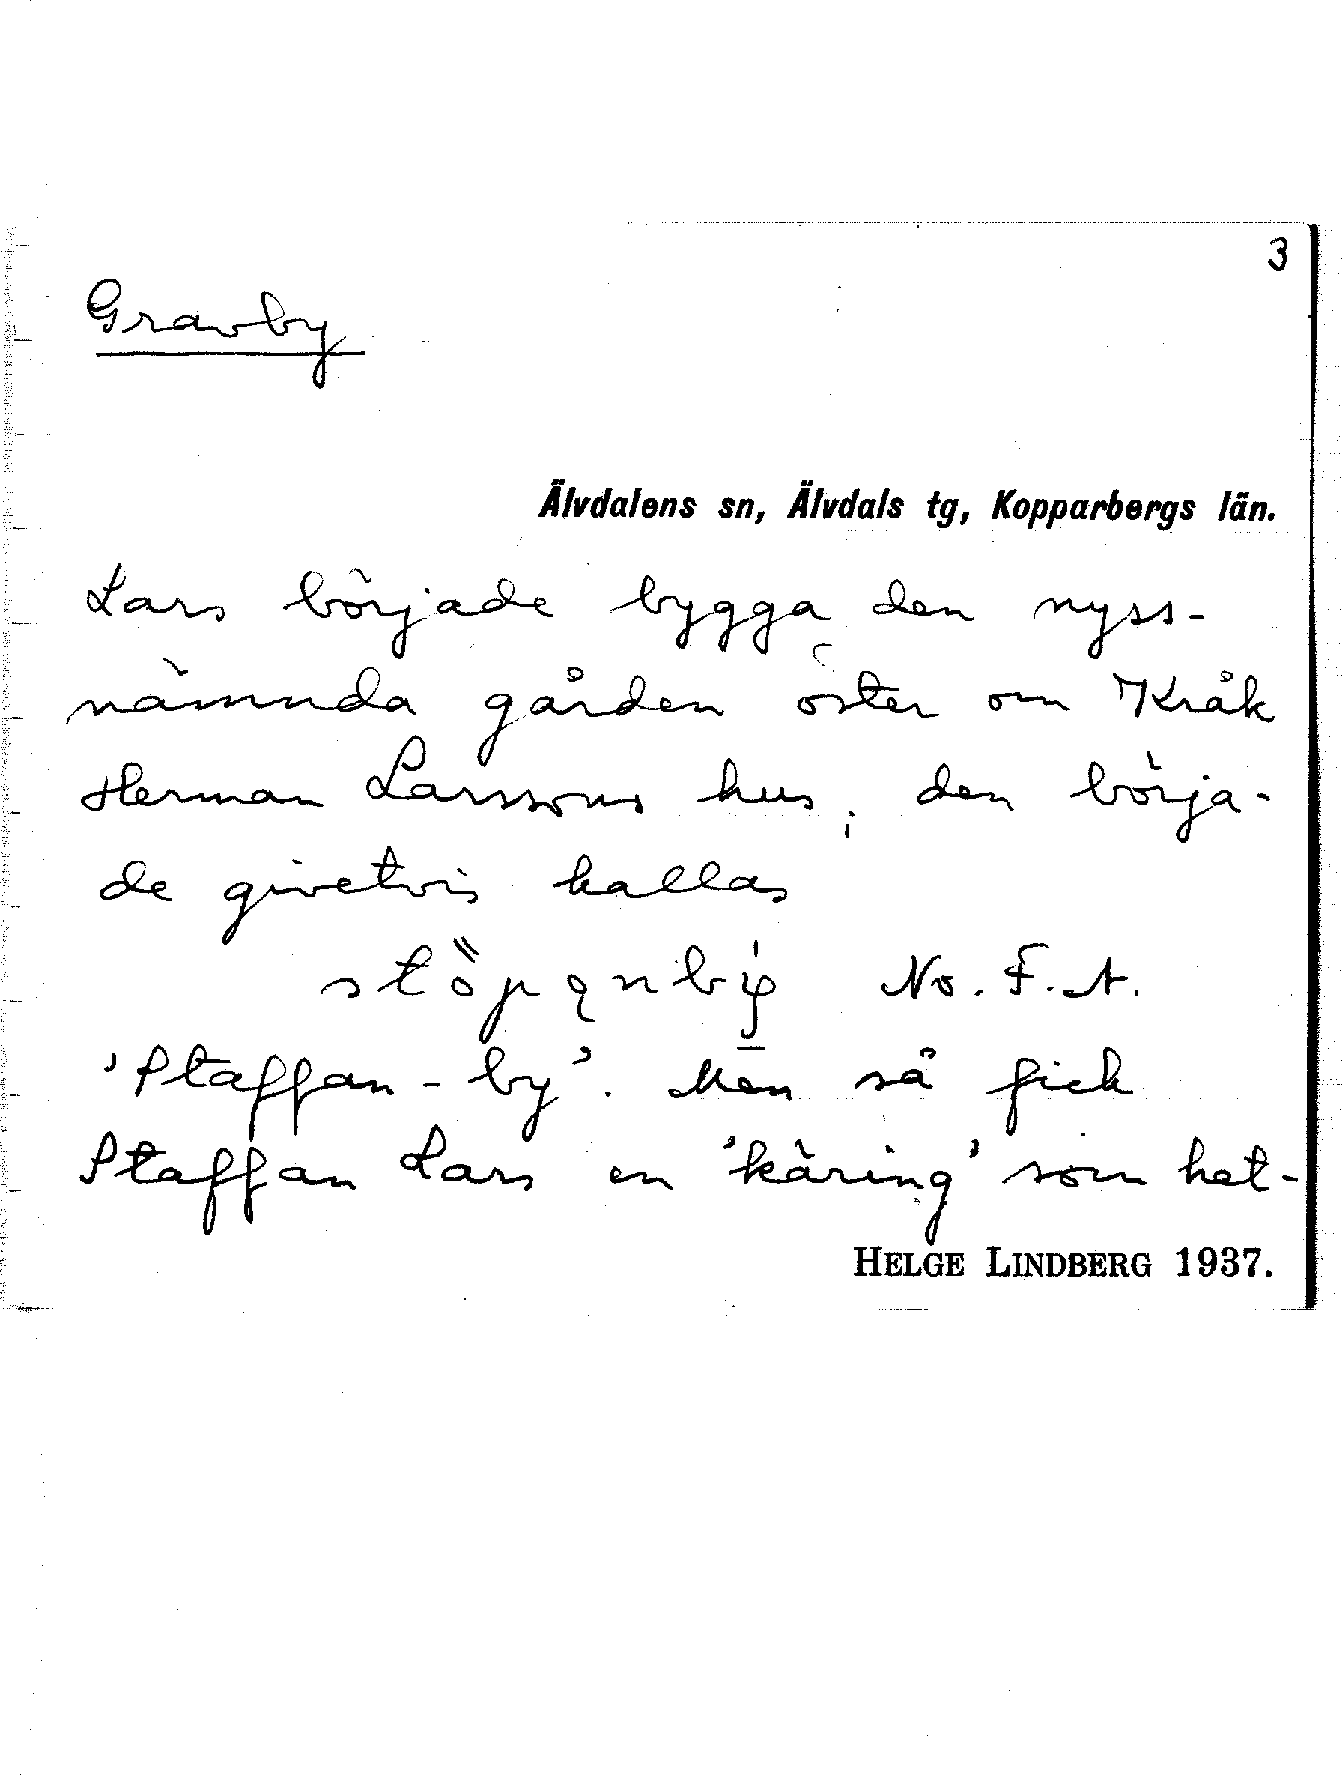 3
Gravby
Älvdalens sn, Älvdals tg, Kopparbergs län.
Lars började bygga den nyss-
nämnda gården öster om Kråk
Herman Larssons hus; den börja-
de givetvis kallas
No. F. A.
'Staffan-by'. Men så fick
Staffan Lars en 'käring' som het-
HELGE LINDBERG 1937.